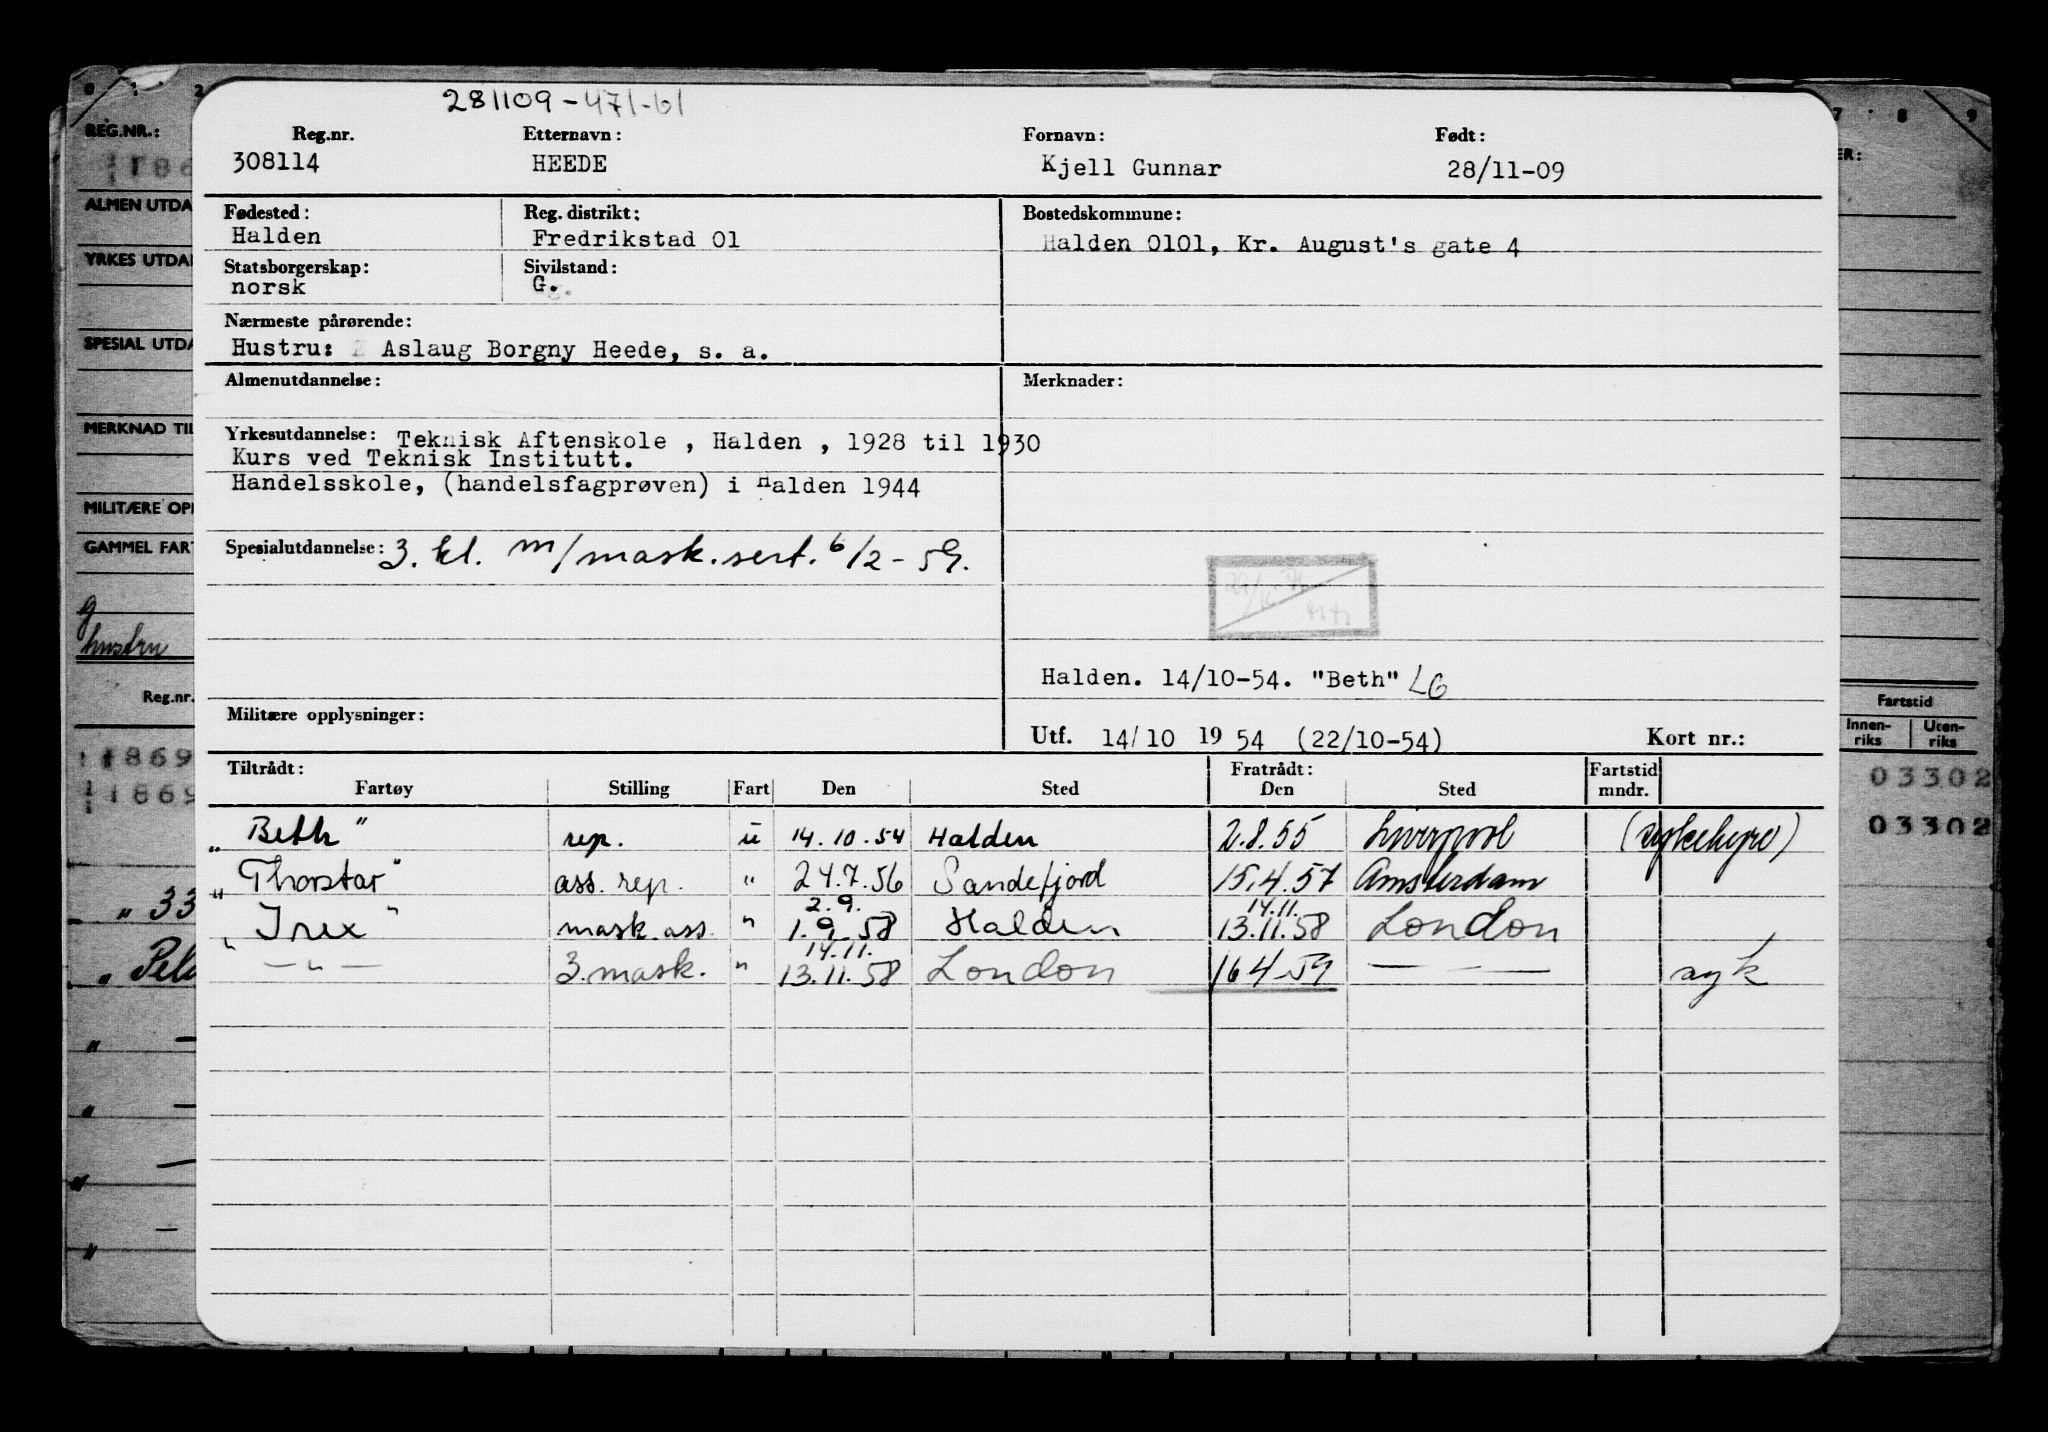 281109-471-61
Reg.nr. Etternavn: Fornavn: Født:
308114 HEEDE Kjell Gunnar 28/11-09
Fødested: Reg. distrikt: Bostedskommune:
Halden Fredrikstad 01 Halden 0101, Kr. August's gate 4
Statsborgerskap: Sivilstand:
norsk G.
Nærmeste pårørende:
Hustru: Aslaug Borgny Heede, s. a.
Almenutdannelse: Merknader:
Yrkesutdannelse: Teknisk Aftenskole , Halden , 1928 til 1930
Kurs ved Teknisk Institutt.
Handelsskole, (handelsfagprøven) i Halden 1944
Spesialutdannelse: 3. kl. m/mask.sert. 6/2-59.
Halden. 14/10-54. "Beth" LG
Militære opplysninger:
Utf. 14/10 1954 (22/10-54) Kort nr.:
Tiltrådt: Fratrådt: Fartstid
Fartøy Stilling Fart Den Sted Den Sted mndr.
"Beth" rep. u 14.10.54 Halden 2.8.55 Liverpool (sykehyre)
"Thorstar" ass. rep. " 24.7.56 Sandefjord 15.4.57 Amsterdam
2.9. 14.11.
"Irex" mask.ass. " 1.9.58 Halden 13.11.58 London
14.11.
—"— 3.mask. " 13.11.58 London 16.4.59 — — syk
0 2
REG.NR.:
186
ALMEN UTDA
YRKES UTDA
SPESIAL UTDA
MERKNAD TIL
MILITÆRE OPP
GAMMEL FART
g
hustru
Reg.nr.
1869
1869
" 33
7 8 9
ER:
Fartstid
Innen-riks Uten-riks
03302
03302